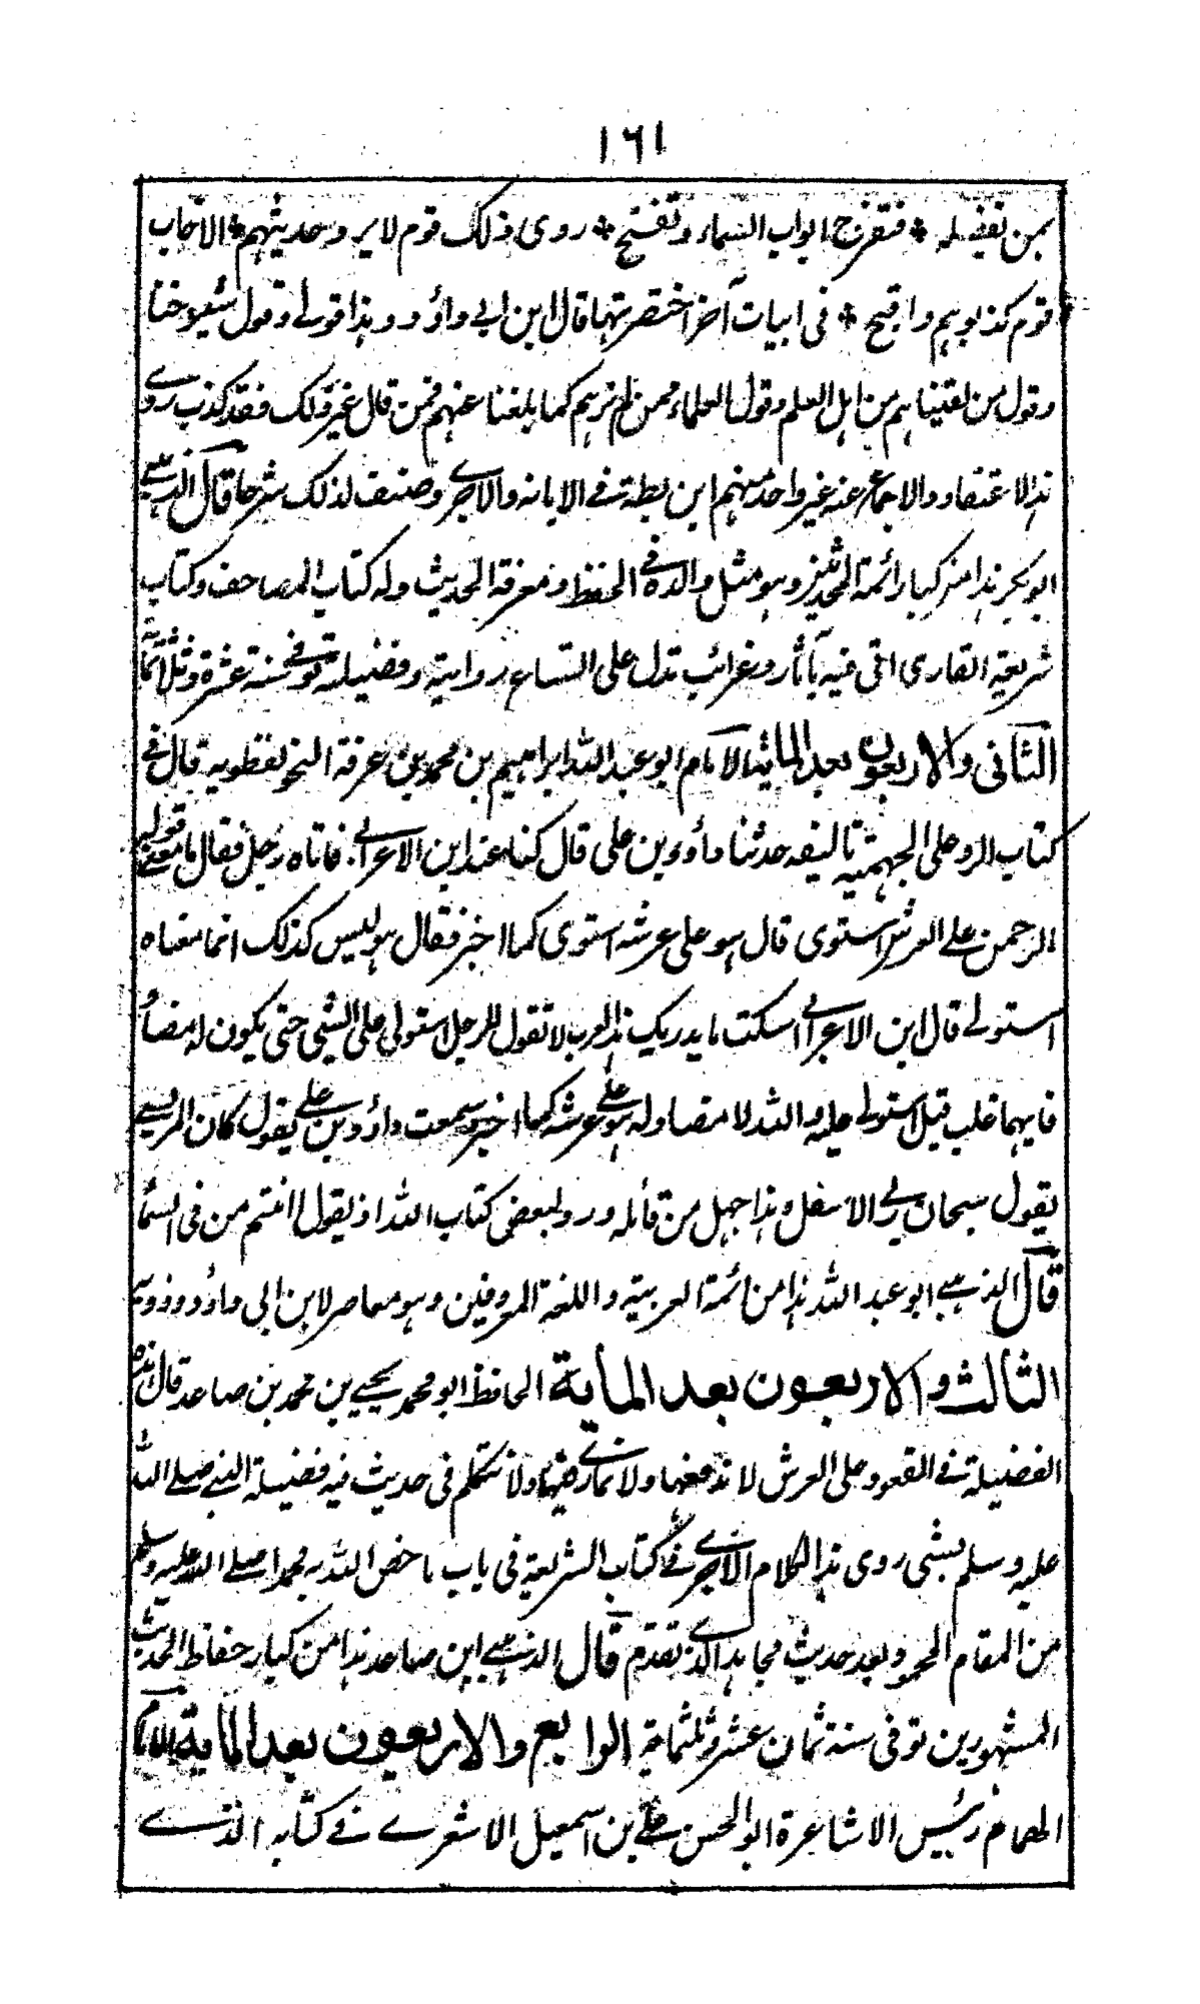 ١٦١
بمن بفضله * فتفرج ابواب السماء وتفتح * روى ذلك قوم لا يرد حديثهم * الا خاب
قوم كذبوهم واقبح * فى ابيات آخر اختصرتها قال ابن ابى داؤد وهذا قولى وقول شيوخنا
وقول من لقيناهم من اهل العلم وقول العلماء ممن لم نرهم كما بلغنا عنهم فمن قال غير ذلك فقد كذب روى
هذا الاعتقاد والاجماع عنه غير واحد منهم ابن بطة فى الابانه والاجرى وصنف لذلك شرحا قال الذهبى
ابو بكر هذا من كبار ائمة المحدثين وهو مثل والده فى الحفظ ومعرفة الحديث وله كتاب المصاحف وكتاب
شريعة القارى اتى فيه بآثار وغرائب تدل على اتساع روايته وفضيلته توفى سنة عشرة وثلثمائة
الثانى والاربعون بعد المائة الامام ابو عبد الله ابراهيم بن محمد بن عرفة النحو نفطويه قال فى
كتاب الرد على الجهمية تاليفه حدثنا داؤد بن على قال كنا عند ابن الاعرابى فاتاه رجل فقال ما معنى قوله
الرحمن على العرش استوى قال هو على عرشه استوى كما اخبر فقال هو ليس كذلك انما معناه
استولى قال ابن الاعرابى اسكت ما يدريك هذا العرب لا تقول للرجل استولى على الشيئ حتى يكون له مضاد
فايهما غلب قيل استولى عليه والله لا مضاد له وهو على عرشه كما اخبر وسمعت داؤد بن على يقول كان المريسى
يقول سبحان ربى الاسفل وهذا جهل من قائله ورد لبعض كتاب الله اذ يقول ءامنتم من فى السماء
قال الذهبى ابو عبد الله هذا من ائمة العربية واللغة المعروفين وهو معاصر لابن ابى داؤد وذويه
الثالث والاربعون بعد المأية الحافظ ابو محمد يحيى بن محمد بن صاعد قال هذه
الفضيلة فى القعود على العرش لا ندفعها ولا نمارى فيها ولا نتكلم فى حديث فيه فضيلة النبى صلى الله
عليه وسلم بشى روى هذا الكلام الآجرى فى كتاب الشريعة فى باب ما خص الله به محمدا صلى الله عليه وسلم
من المقام المحمود بعد حديث مجاهد الذى تقدم قال الذهبى ابن صاعد هذا من كبار حفاظ الحديث
المشهورين توفى سنة ثمان عشر وثلثماية الرابع والاربعون بعد الماية الامام
الهمام رئيس الاشاعرة ابو الحسن على بن اسمعيل الاشعرى فى كتابه الذى